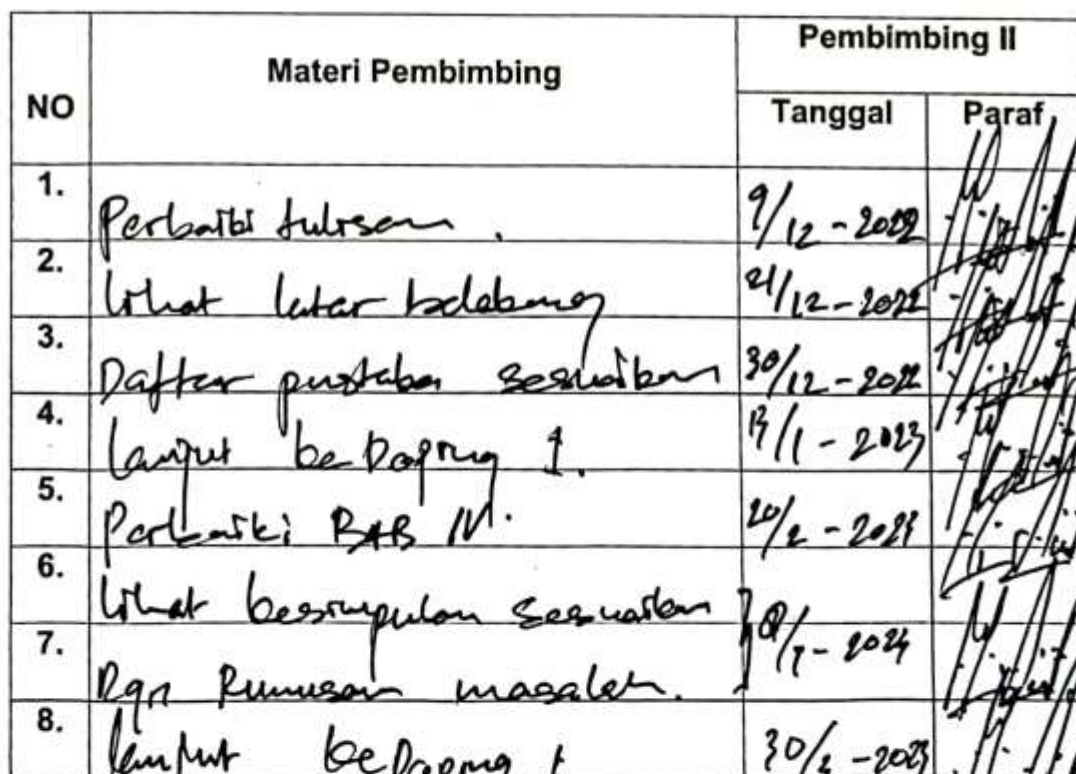 NO Materi Pembimbing Pembimbing II
Tanggal Paraf
1. Perbaiki tulisan. 9/12-2022
2. Lihat latar belakang 21/12-2022
3. Daftar pustaka sesuaikan 30/12-2022
4. Lanjut ke Doping 1. 17/1-2023
5. Perbaiki BAB IV. 20/2-2023
6. Lihat kesimpulan sesuaikan
7. Dgn Rumusan masalah.
8. Lanjut ke Doping 1